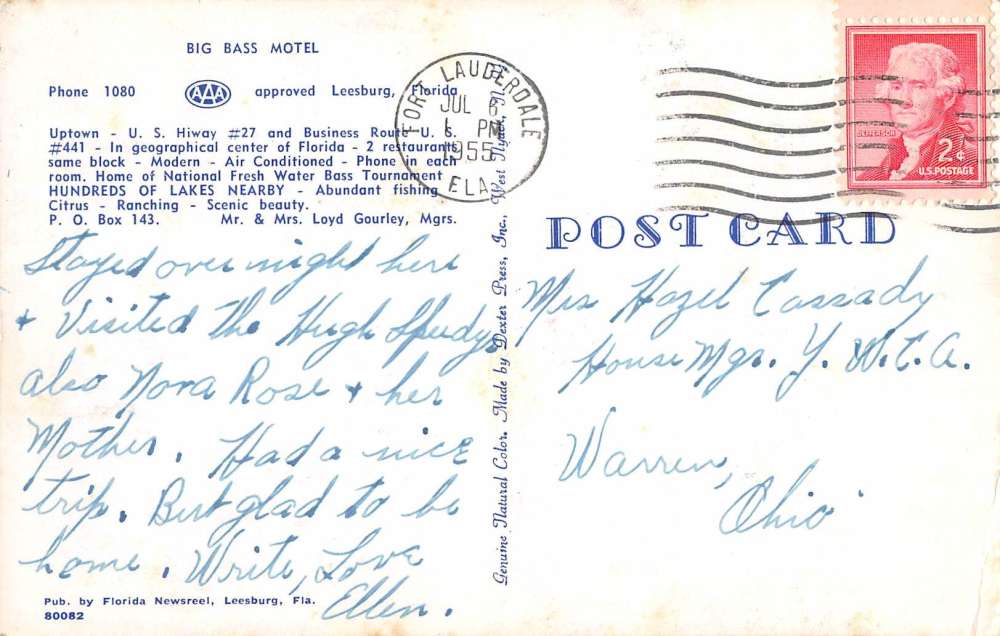 BIG BASS MOTEL
Phone 1080 AAA approved Leesburg, Florida
Uptown - U. S. Hiway #27 and Business Route U. S.
#441 - In geographical center of Florida - 2 restaurants
same block - Modern - Air Conditioned - Phone in each
room. Home of National Fresh Water Bass Tournament
HUNDREDS OF LAKES NEARBY - Abundant fishing
Citrus - Ranching - Scenic beauty.
P. O. Box 143. Mr. & Mrs. Loyd Gourley, Mgrs.
Stayed over night here
+ Visited the Hugh Speedys
also Nora Rose + her
Mother. Had a nice
trip. But glad to be
home. Write, Love
Ellen.
Pub. by Florida Newsreel, Leesburg, Fla.
80082
Genuine Natural Color. Made by Dexter Press, Inc., West Nyack, N.Y.
FORT LAUDERDALE
JUL 6
1 PM
1955
FLA.
JEFFERSON
2¢
U.S. POSTAGE
POST CARD
Mrs Hazel Cassady
House Mgr. Y. W. C. A.
Warren,
Ohio